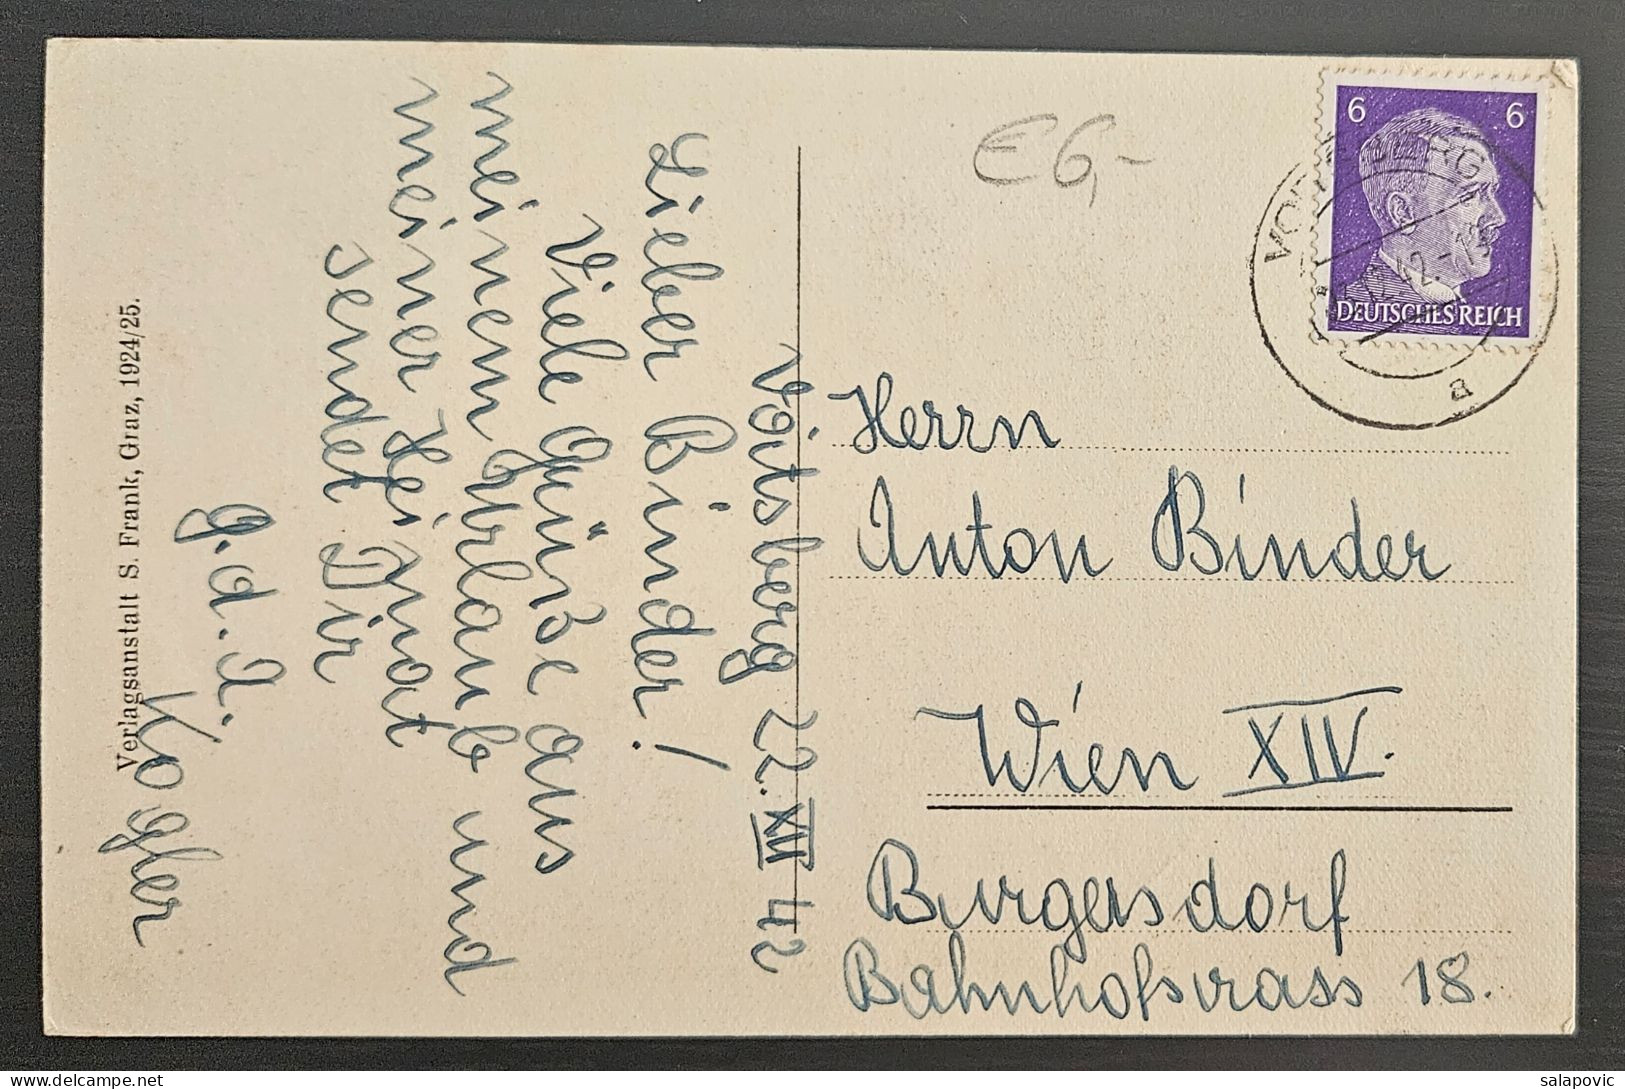 Voitsberg 22. XII 42
Lieber Binder!
Viele Grüße aus
meinem Urlaub und
meiner Heimat
sendet Dir
g. d. I.
Kogler
Verlagsanstalt S. Frank, Graz, 1924/25.
E 6,-
6 6
DEUTSCHES REICH
42.-19
a
Herrn
Anton Binder
Wien XIV.
Burgersdorf
Bahnhofsrass 18.
salapovic